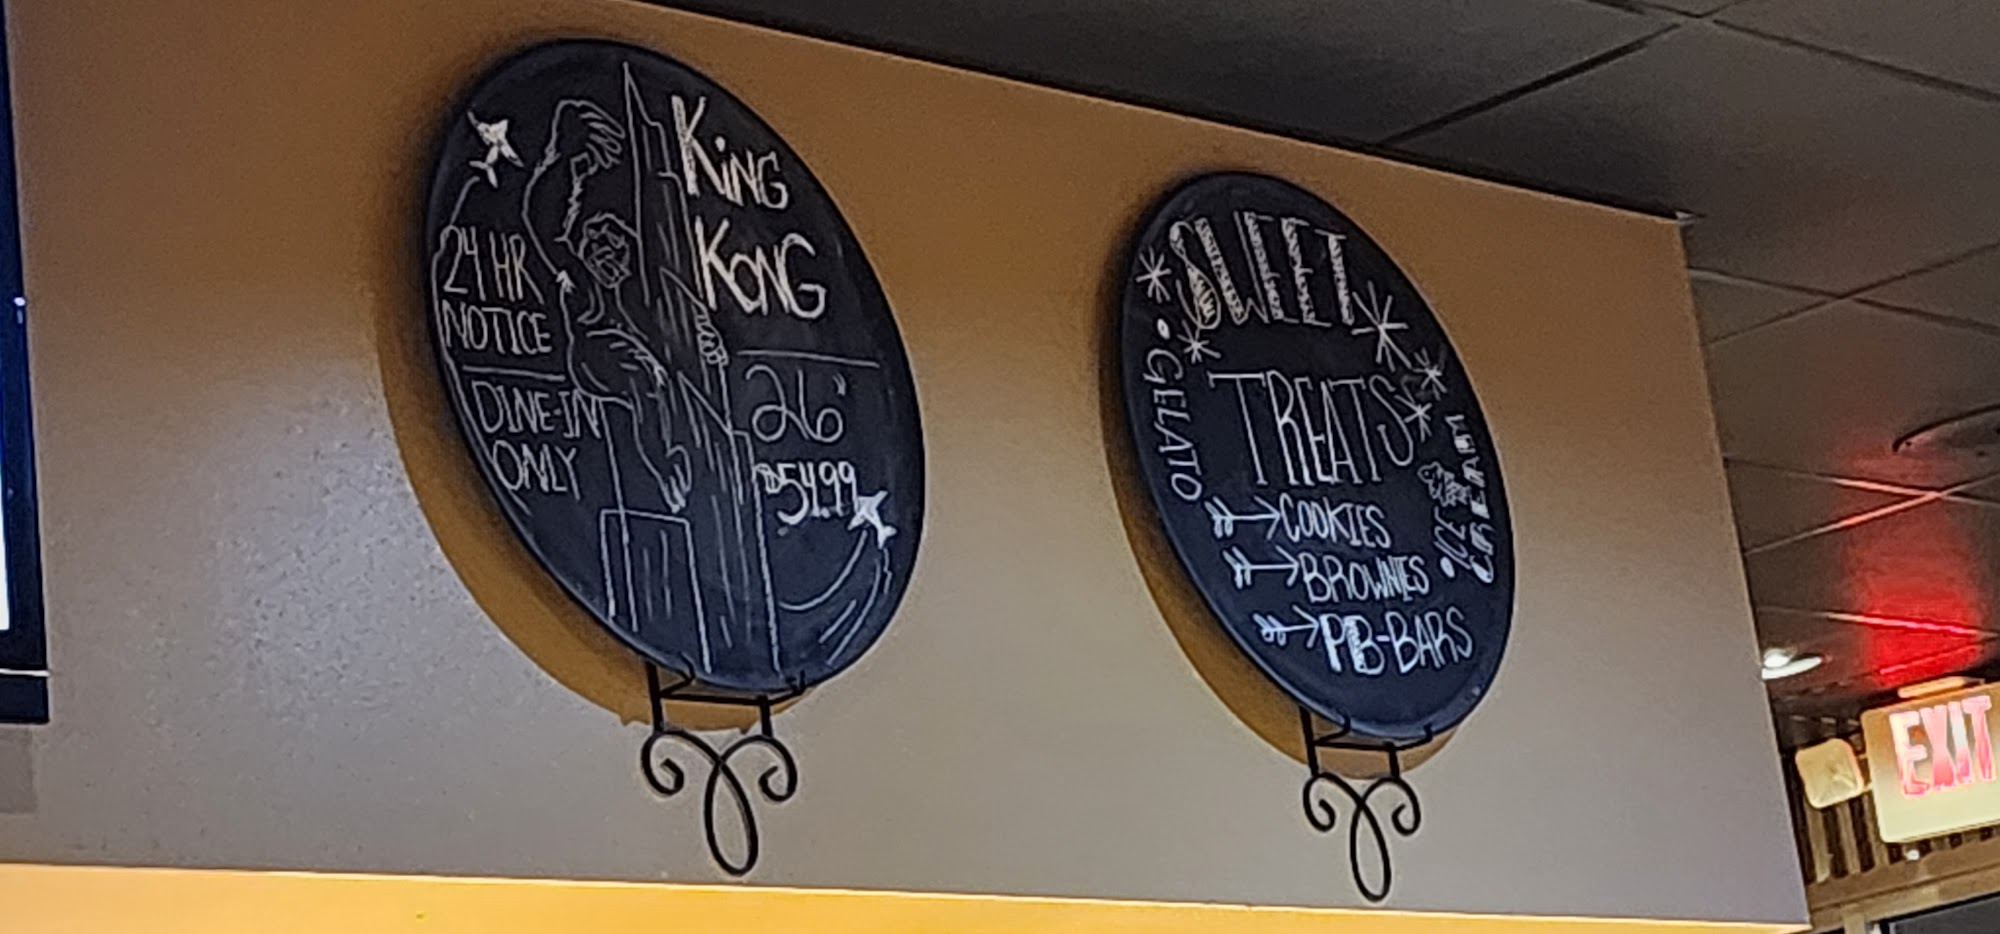 KING
KONG
24 HR
NOTICE
DINE-IN
ONLY
26"
$54.99
SWEET
TREATS
• GELATO
COOKIES
BROWNIES
PB-BARS
• ICE
CREAM
EXIT